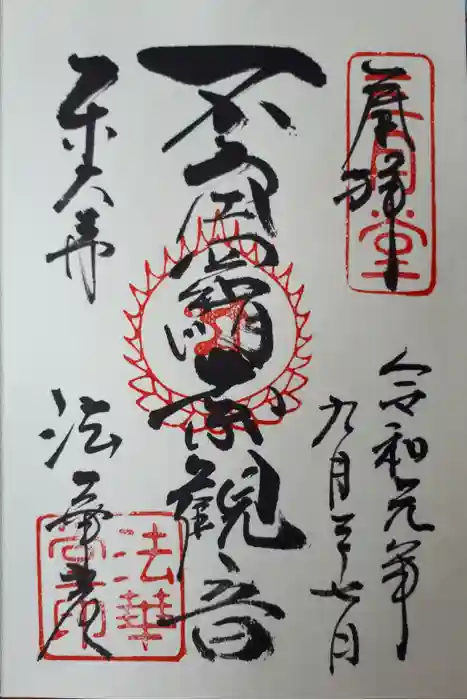 奉拝
三月堂
令和元年
九月二十七日
不空羂索観音
東大寺
法華堂
法華
堂印